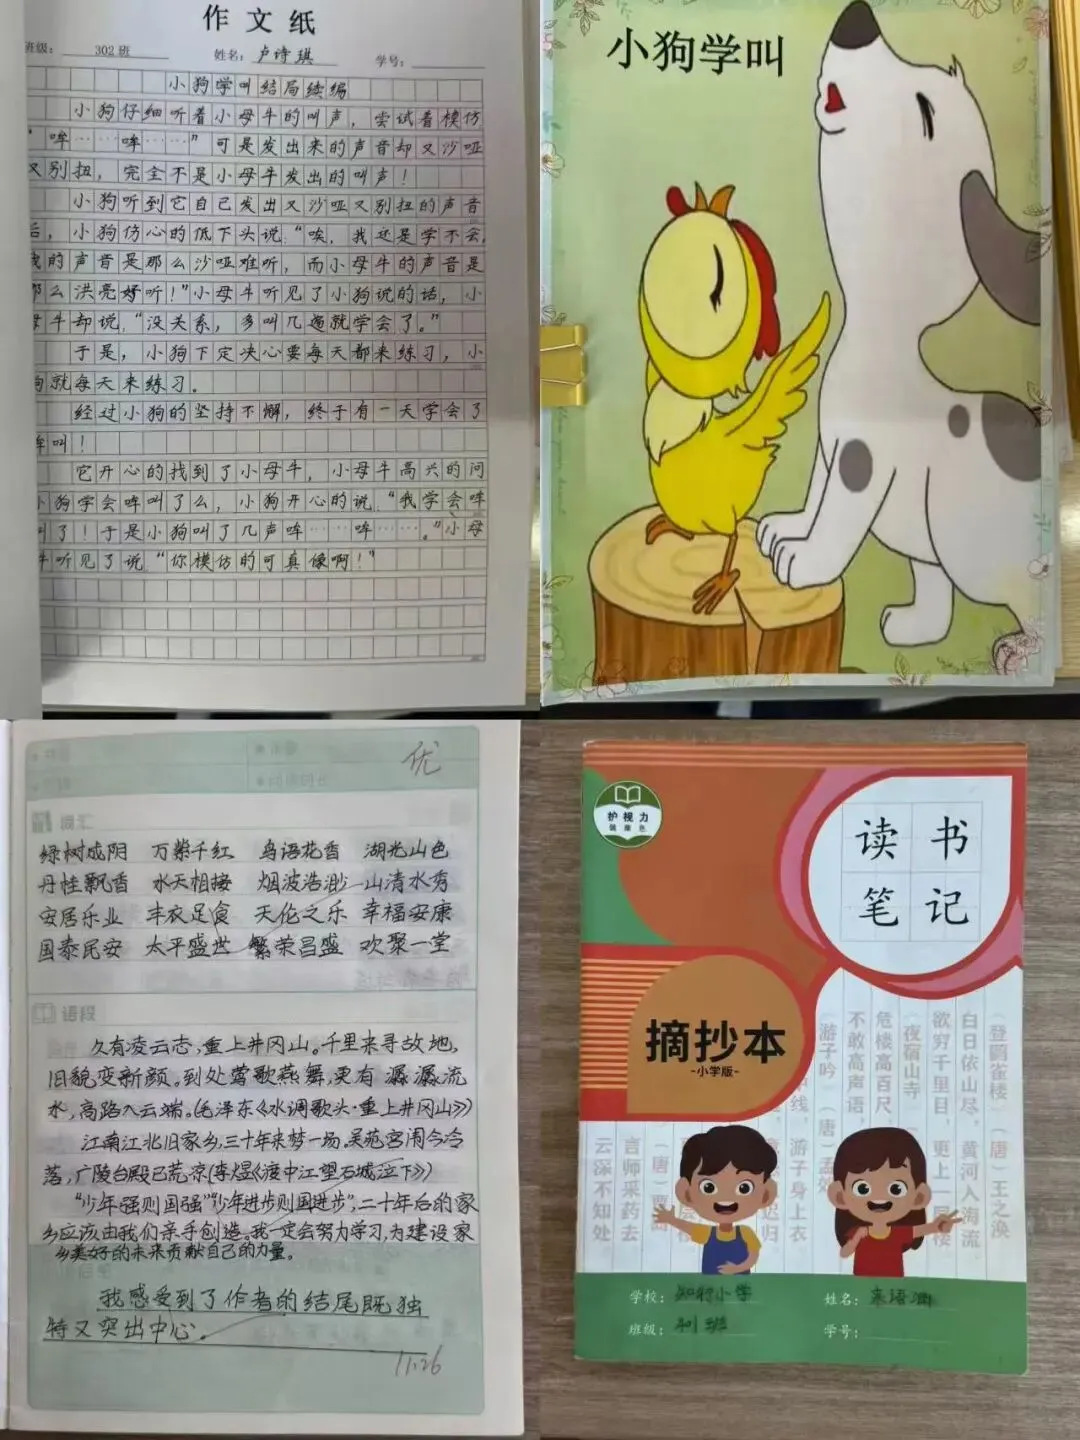 作文纸
班级： 302班 姓名：卢诗琪 学号：
小狗学叫结局续编
小狗仔细听着小母牛的叫声，尝试着模仿
“哞……哞……”可是发出来的声音却又沙哑
又别扭，完全不是小母牛发出的叫声！
小狗听到它自己发出又沙哑又别扭的声音
后，小狗伤心的低下头说“唉，我还是学不会，
我的声音是那么沙哑难听，而小母牛的声音是
那么洪亮好听！”小母牛听见了小狗说的话，小
母牛却说，“没关系，多叫几遍就学会了。”
于是，小狗下定决心要每天都来练习，小
狗就每天来练习。
经过小狗的坚持不懈，终于有一天学会了
哞叫！
它开心的找到了小母牛，小母牛高兴的问
小狗学会哞叫了么，小狗开心的说“我学会哞
叫了！于是小狗叫了几声哞……哞……。”小母
牛听见了说“你模仿的可真像啊！”
小狗学叫
优
词汇
绿树成阴 万紫千红 鸟语花香 湖光山色
丹桂飘香 水天相接 烟波浩渺 山清水秀
安居乐业 丰衣足食 天伦之乐 幸福安康
国泰民安 太平盛世 繁荣昌盛 欢聚一堂
语段
久有凌云志，重上井冈山。千里来寻故地，
旧貌变新颜。到处莺歌燕舞，更有潺潺流
水，高路入云端。(毛泽东《水调歌头·重上井冈山》)
江南江北旧家乡，三十年来梦一场。吴苑宫闱今冷
落，广陵台殿已荒凉(李煜《渡中江望石城泣下》)
“少年强则国强”“少年进步则国进步”，二十年后的家
乡应该由我们亲手创造。我一定会努力学习，为建设家
乡美好的未来贡献自己的力量。
我感受到了作者的结尾既独
特又突出中心。
11.26
护视力
读书
笔记
摘抄本
-小学版-
（登鹳雀楼）（唐）王之涣
白日依山尽，黄河入海流
欲穷千里目，更上一层楼
（夜宿山寺）
危楼高百尺，
不敢高声语，
（游子吟）（唐）孟郊
线，游子身上衣
迟归
（唐）贾岛
言师采药去
云深不知处
学校：知行小学 姓名：
班级： 学号：